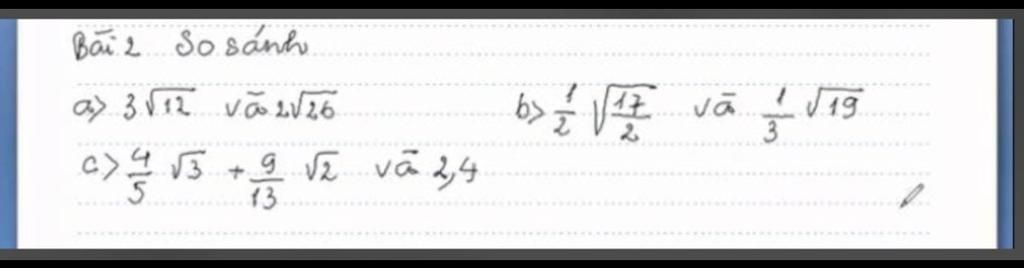 Bài 2 So sánh
a) 3√12 và 2√26 b) 1/2 √(17/2) và 1/3 √19
c) 4/5 √3 + 9/13 √2 và 2,4